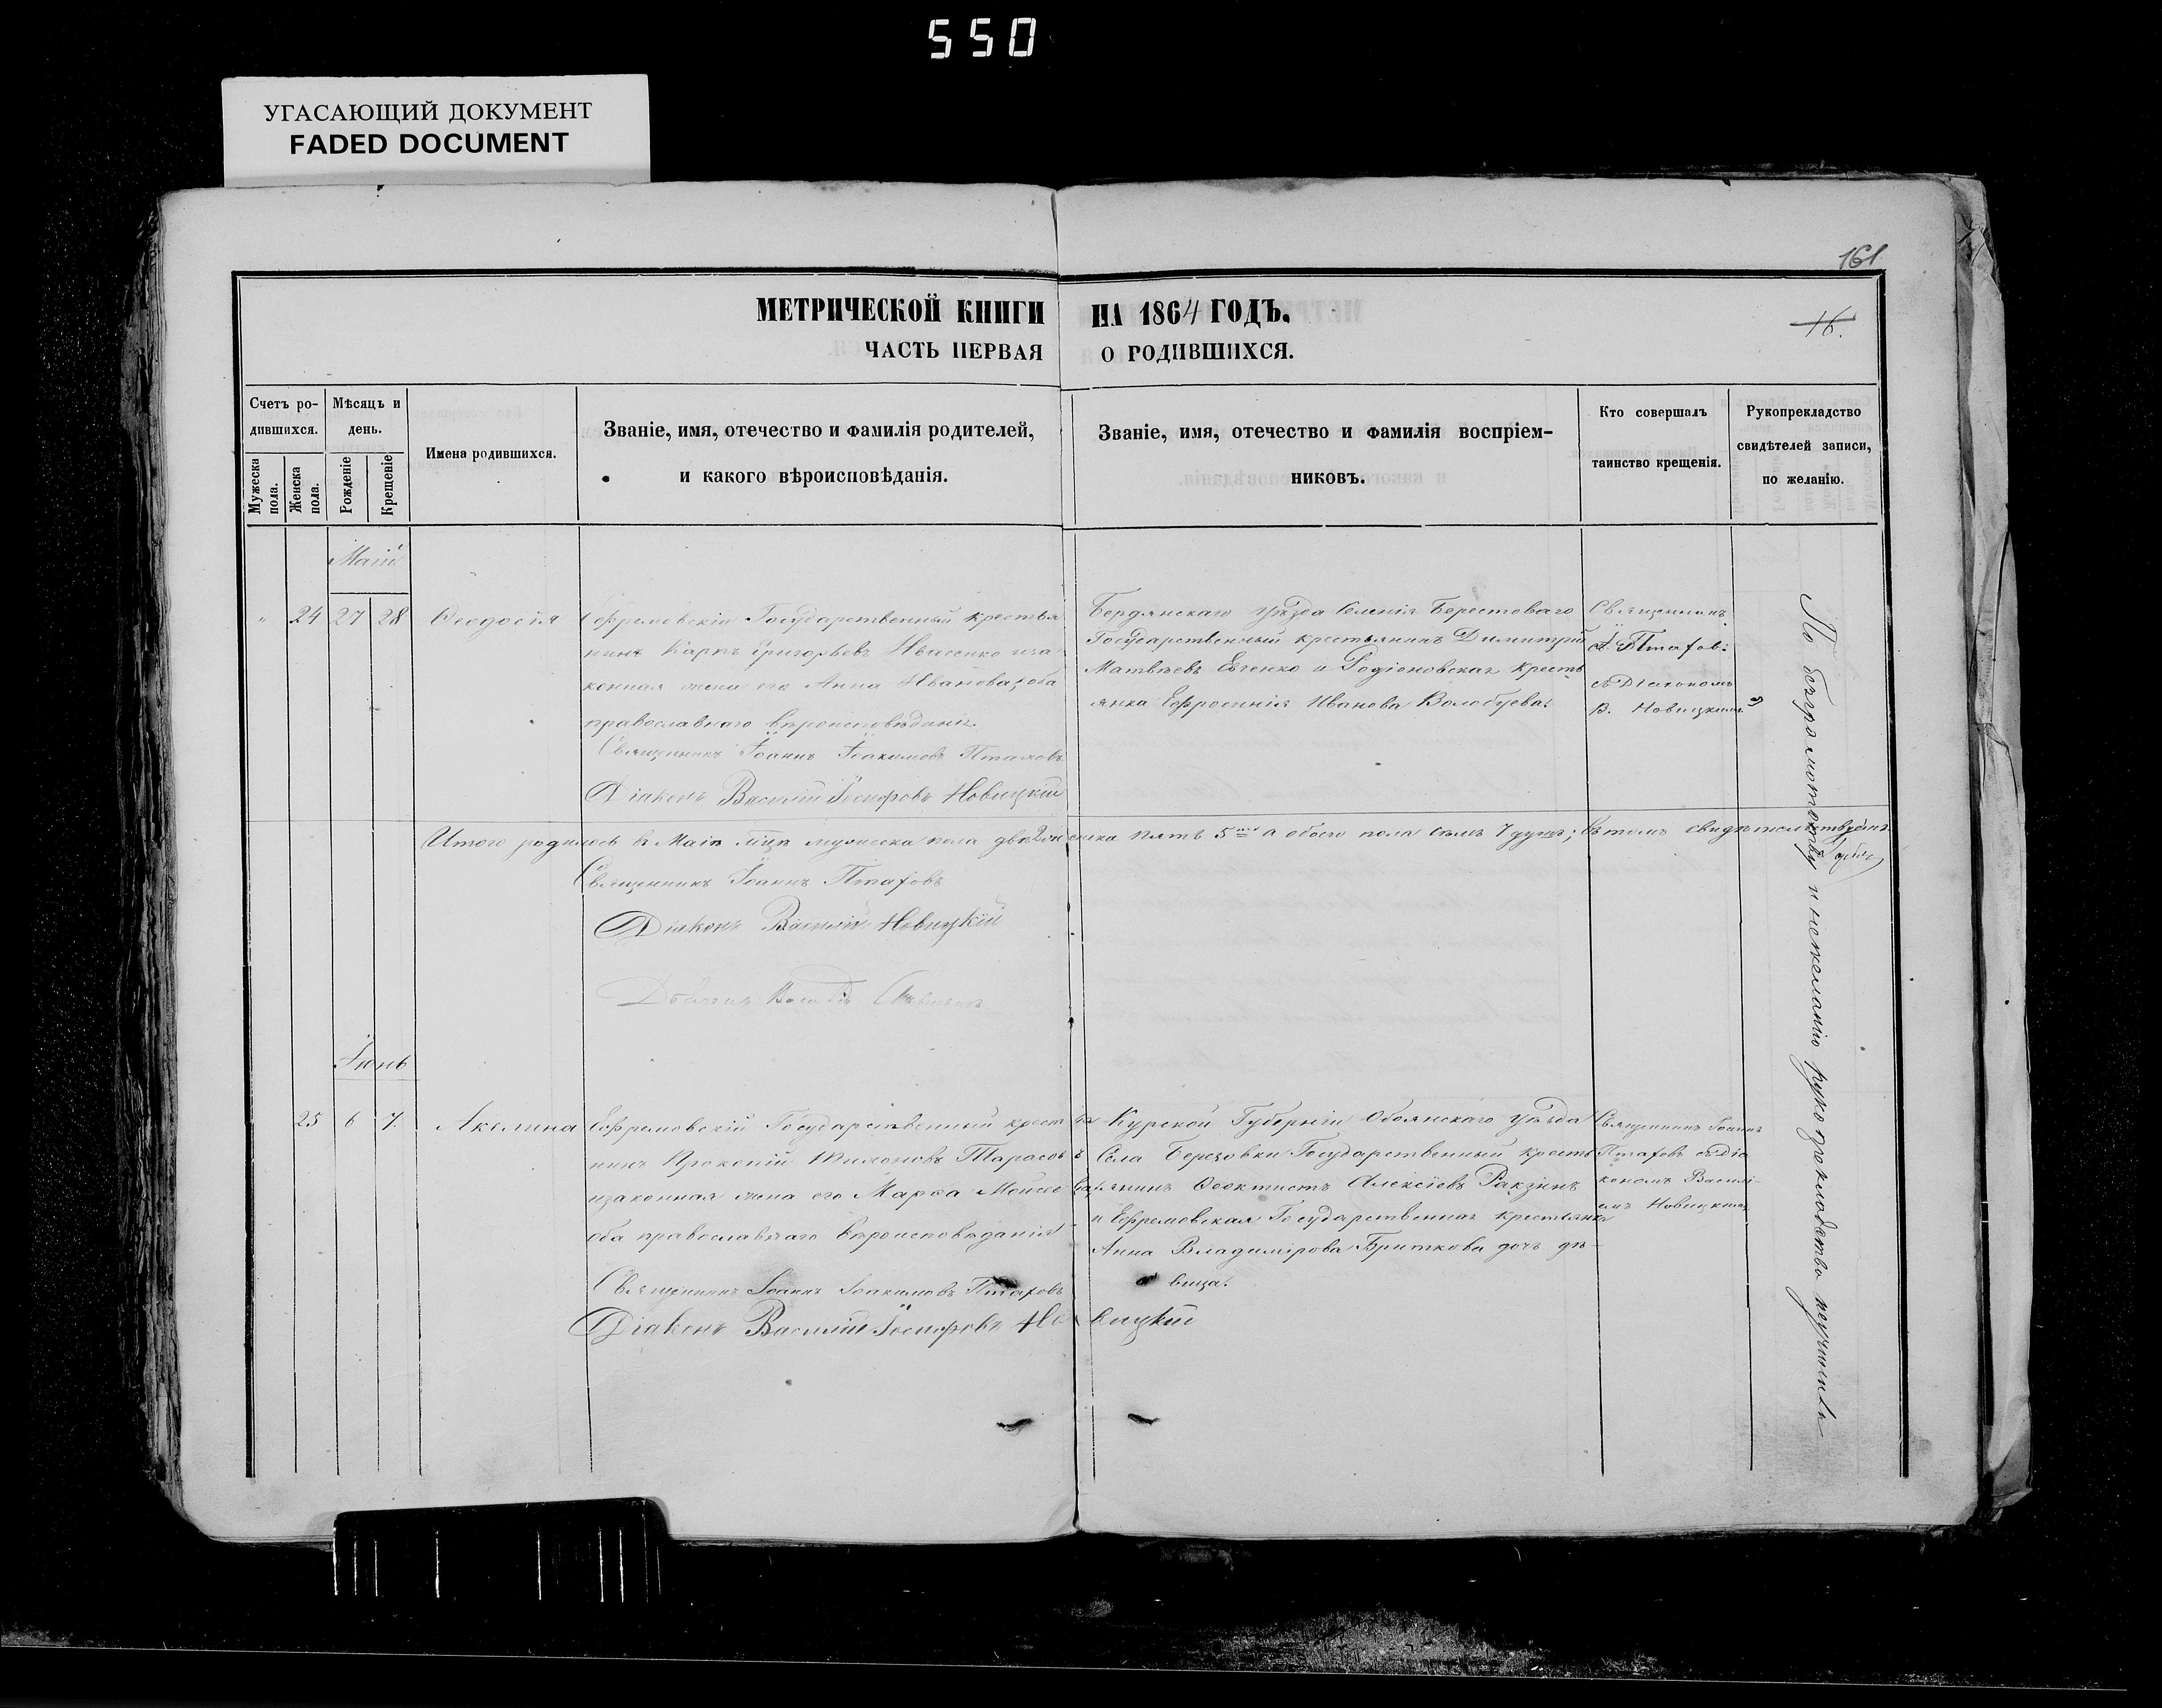 550
УГАСАЮЩИЙ ДОКУМЕНТ
FADED DOCUMENT
161
МЕТРИЧЕСКОЙ КНИГИ НА 1864 ГОДЪ.
16.
ЧАСТЬ ПЕРВАЯ О РОДИВШИХСЯ.
Счетъ ро-
дившихся.
Мужеска
пола.
Женска
пола.
Мѣсяцъ и
день.
Рожденіе
Крещеніе
Имена родившихся.
Званіе, имя, отечество и фамилія родителей,
и какого вѣроисповѣданія.
Званіе, имя, отечество и фамилія воспріем-
никовъ.
Кто совершалъ
таинство крещенія.
Рукоприкладство
свидѣтелей записи,
по желанію.
Маій
" 24 27 28 Ѳеодосія
Ефремовскій Государственный крестья
нинъ Карпъ Григорьевъ Ивасенко иза
конная жена его Анна Иванова, оба
православнаго вѣроисповѣданія.
Священникъ Іоаннъ Іоакимовъ Птаховъ
Діаконъ Василій Іосифовъ Новицкій
Бердянскаго уѣзда Селенія Берестоваго
Государственный крестьянинъ Димитрій
Матвѣевъ Евченко и Родіоновская кресть
янка Ефросинія Иванова Волобуева.
Священникъ
І. Птаховъ
съ Діакономъ
В. Новицкимъ
Итого родилось въ Маіѣ мцѣ мужеска пола два 2 женска пять 5 а обоего пола семь 7 душъ; въ томъ свидѣтельствуемъ
Священникъ Іоаннъ Птаховъ
Діаконъ Василій Новицкій
Іюнь
25 6 7. Акелина
Ефремовскій Государственный кресть
нинъ Прокопій Тимоновъ Тарасовъ
изаконная жена его Марѳа Моисеева,
оба православнаго вѣроисповѣданія
Священникъ Іоаннъ Іоакимовъ Птаховъ
Діаконъ Василій Іосифовъ Новицкій
Курской Губерніи Обоянскаго уѣзда
Села Березовки Государственный кресть
янинъ Ѳеоктистъ Алексіевъ Ракзинъ
и Ефремовская Государственная крестьянка
Анна Владимірова Бриткова дочь дѣ-
вица.
Священникъ Іоаннъ
Птаховъ съ Діа
кономъ Василі-
емъ Новицкимъ
По безграмотству и нежеланію рукоприкладство неучинили